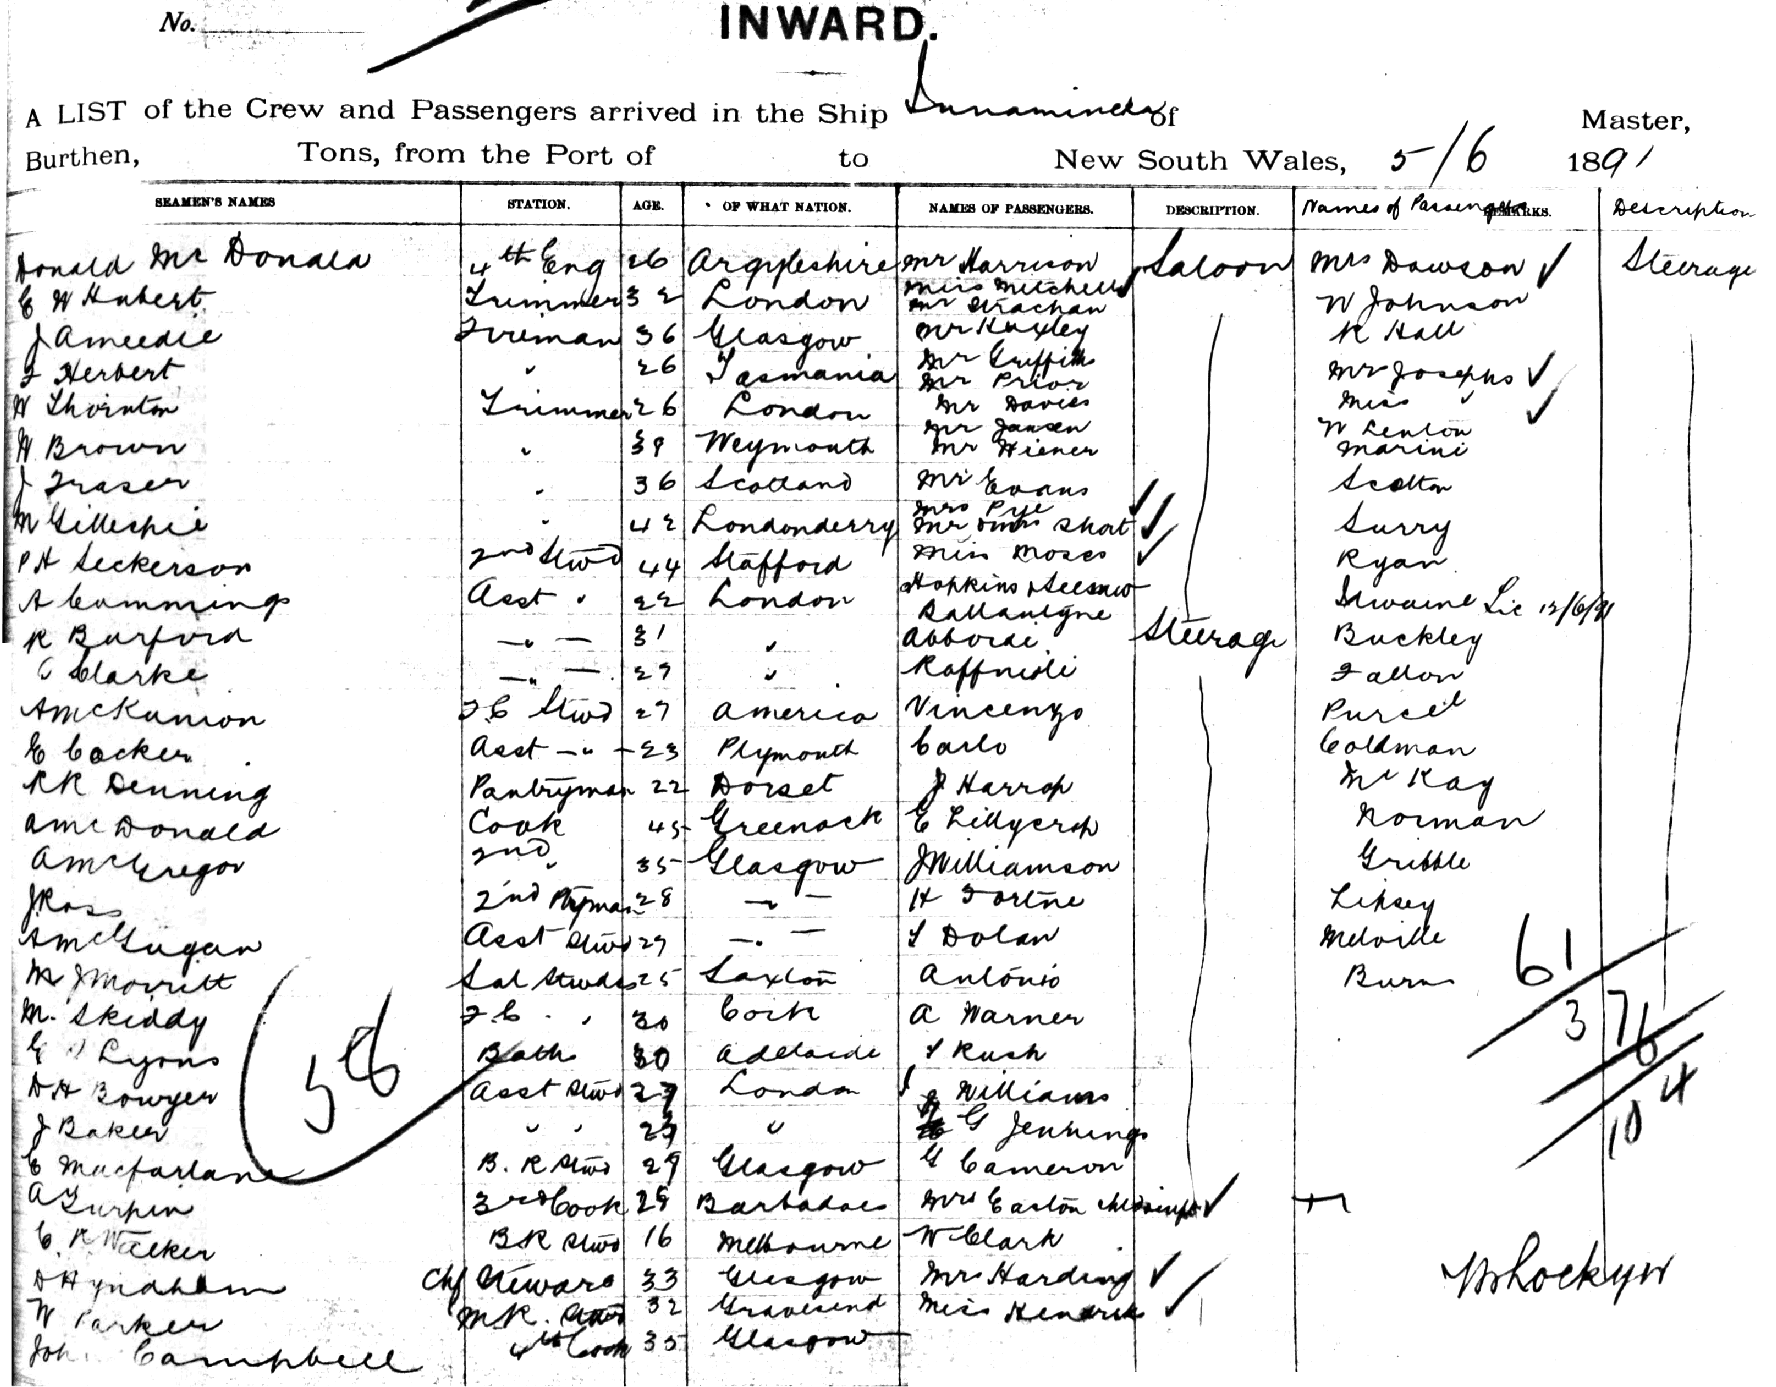 No.
INWARD.
A LIST of the Crew and Passengers arrived in the Ship of Master,
Burthen, Tons, from the Port of to New South Wales, 5/6 1891
SEAMEN'S NAMES STATION. AGE. OF WHAT NATION. NAMES OF PASSENGERS. DESCRIPTION. Names of Passengers REMARKS. Description
Donald Mc Donald 4th Eng 26 Argyleshire Mr Harrison Saloon Mrs Dawson ✓ Steerage
Miss Mitchell ✓
E W Hubert Trimmer 32 London Mr Strachan W Johnson
J Ameedie Fireman 36 Glasgow Mr Huxley R Hall
Mr Griffith
F Herbert " 26 Tasmania Mr Prior Mr Josephs ✓
W Thornton Trimmer 26 London Mr Davies Miss " ✓
Mr Jansen W Lenton
H Brown " 39 Weymouth Mr Wiener Marini
J Fraser " 36 Scotland Mr Evans Scolton
Mrs Pye ✓
M Gillespie " 42 Londonderry Mr Short ✓ Surry
P H Seckerson 2nd Stwd 44 Stafford Miss Moses ✓ Ryan
Hopkins
A Cummings Asst " 22 London Ballantyne Swaine Lic 12/6/91
R Burford — " — 31 " Steerage Buckley
C Clarke — " — 29 " Fallon
A McKunion F C Stwd 27 America Vincenzo Purcel
E Cocker Asst — " — 23 Plymouth Carlo Coldman
R R Denning Pantryman 22 Dorset J Harrop Mc Kay
A Mc Donald Cook 45 Greenock E Lillycrop Norman
A McGregor 2nd " 35 Glasgow J Williamson Gribble
J Ross 2nd Ptyman 28 — " — H Fortne Lipsey
A McGugan Asst Stwd 29 — " — T Dolan Melville
M J Morritt Sal Stwdss 25 Saxton Antonio Burns 61
M. Skiddy F C " " 30 Cork A Warner 37
E Lyons Bath 30 Adelaide T Rush 6
D H Bowyer Asst Stwd 27 London J Williams 104
J Baker " " 29 " G Jennings
58
E Macfarlane B. R Stwd 29 Glasgow G Cameron
A Turpin 3rd Cook 29 Barbadoes Mrs Easton ✓
C. R Walker B R Stwd 16 Melbourne W Clark
D Hyndham Chf Steward 33 Glasgow Mrs Harding ✓
W Parker M R. Stwd 32 Gravesend Miss Hendrik ✓
John Campbell 4th Cook 35 Glasgow